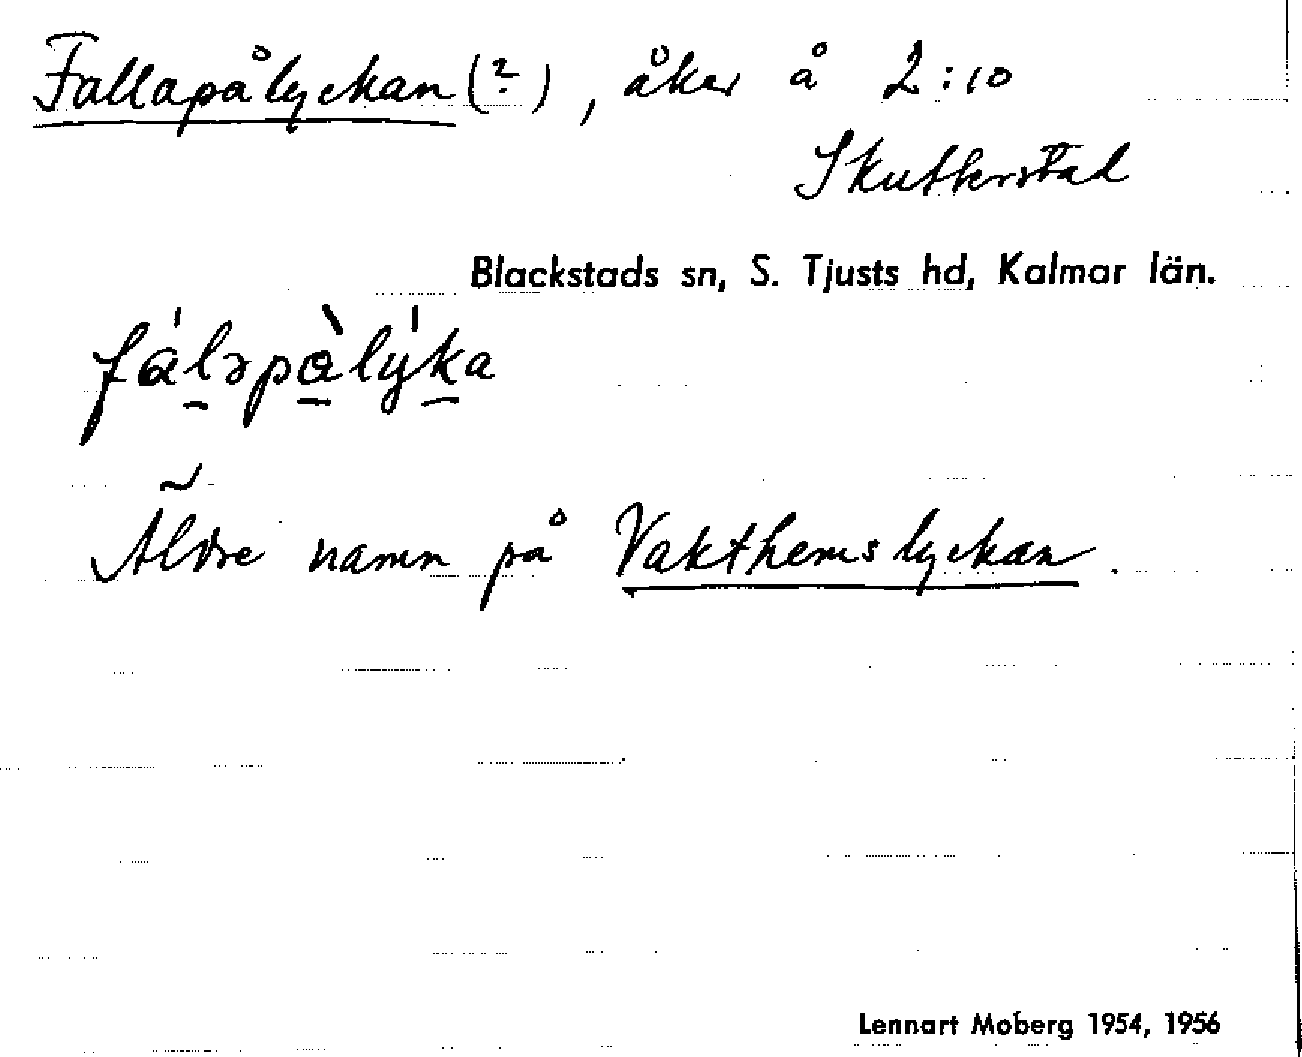 Fallapålyckan (?), åker å 2:10
Skutterstad
Blackstads sn, S. Tjusts hd, Kalmar län.
fáləpàlýka
Äldre namn på Vakthemslyckan.
Lennart Moberg 1954, 1956